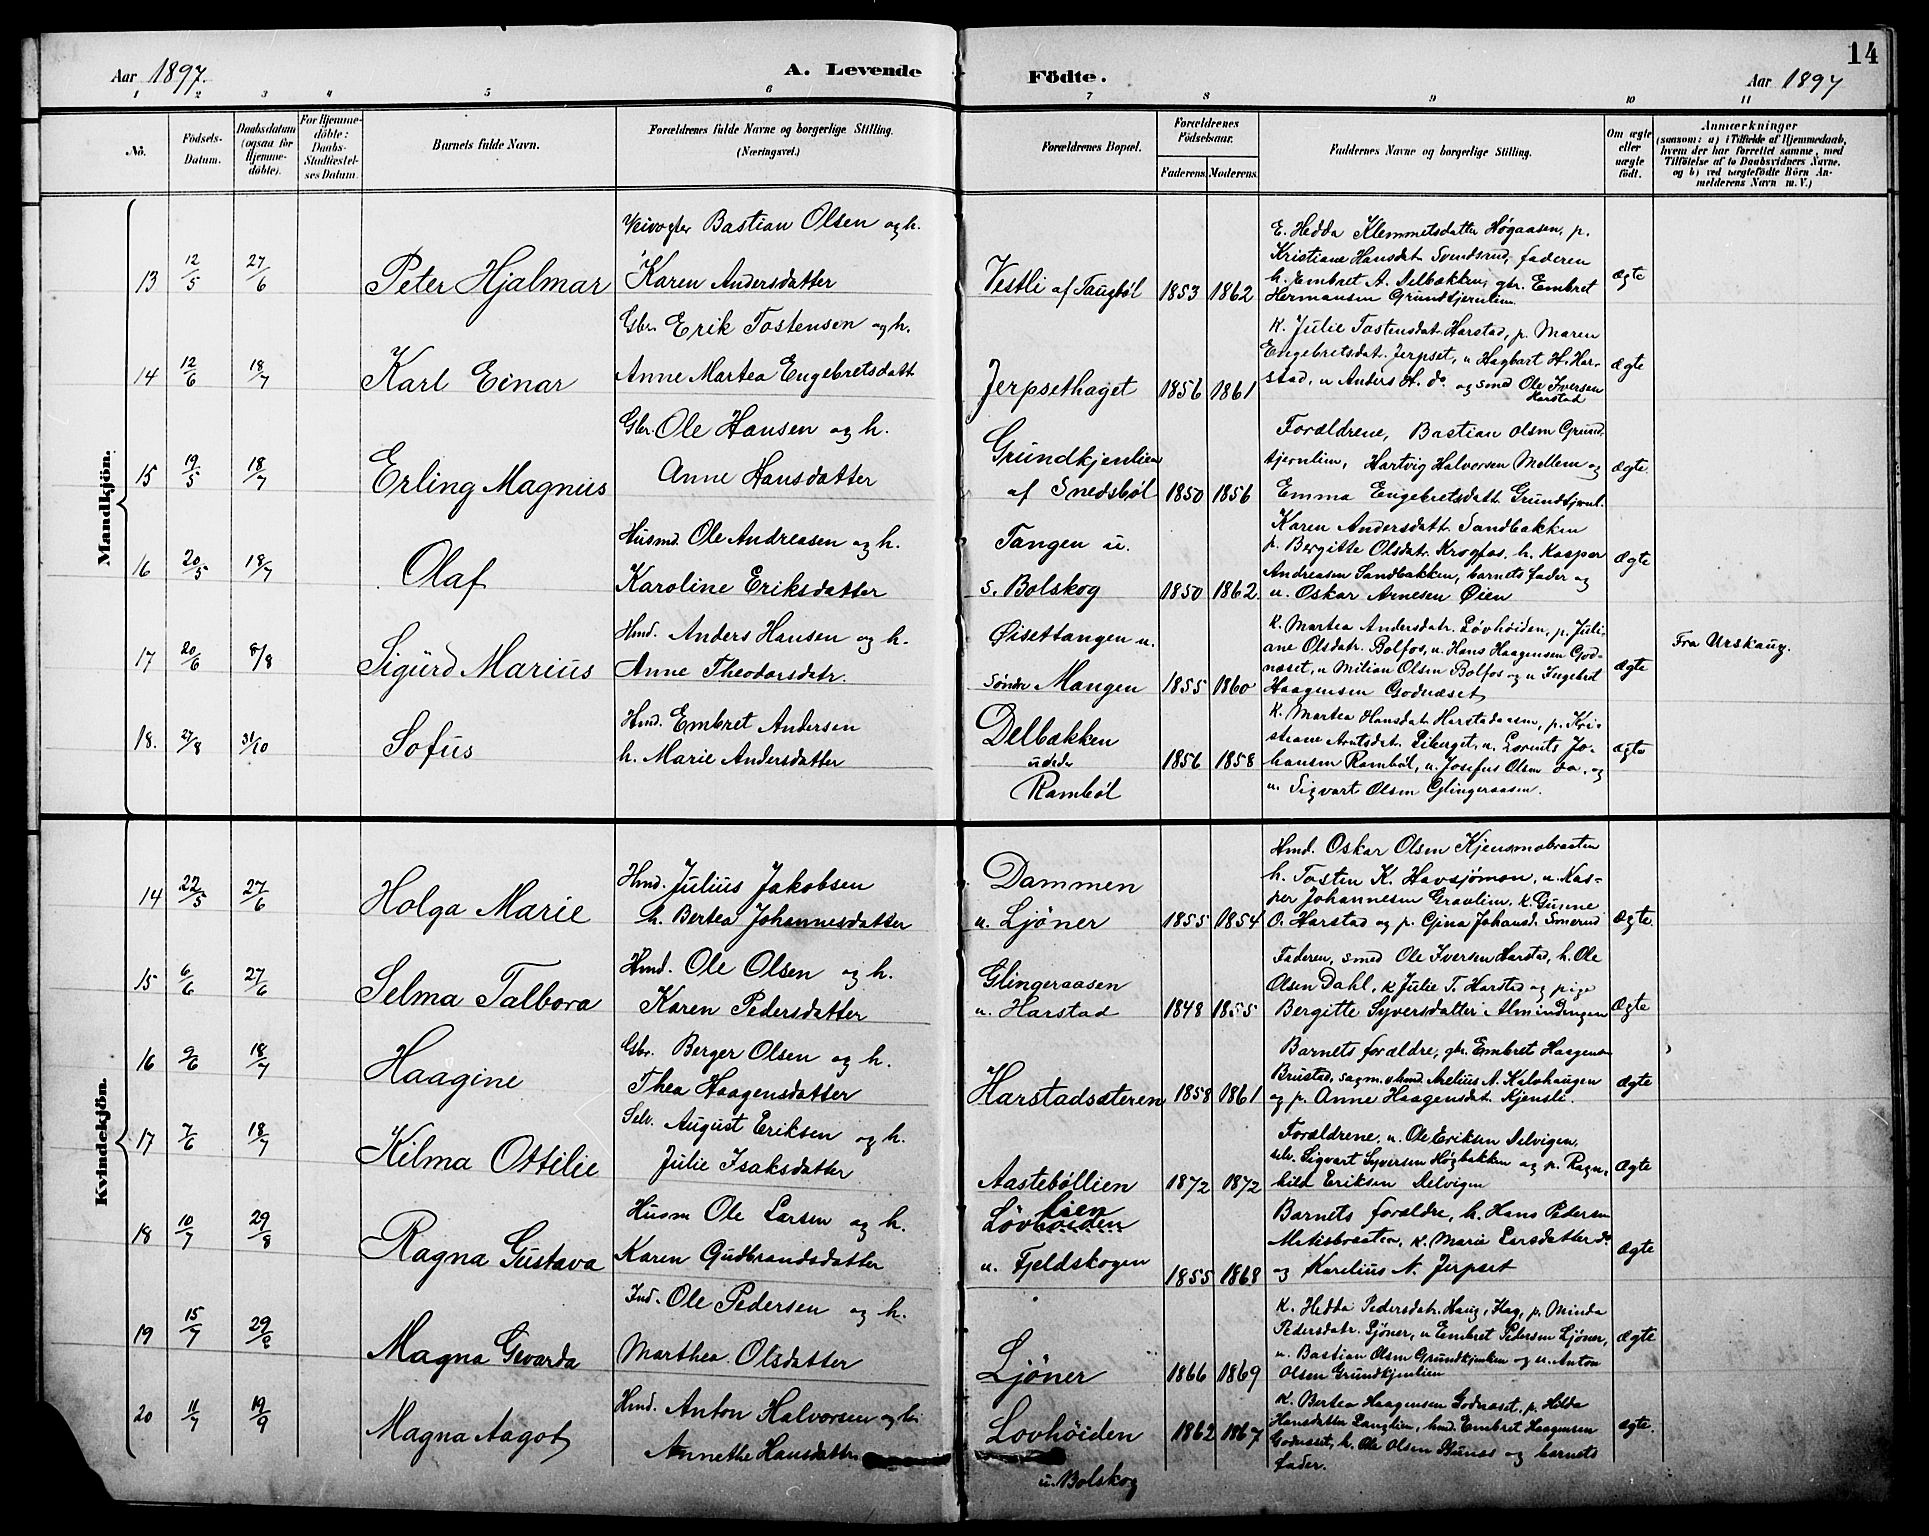 14
Aar 1897. A. Levende Födte. Aar 1897
1 2 3 4 5 6 7 8 9 10 11
No.
Födsels-
Datum.
Daabsdatum
(ogsaa for
Hjemme-
döbte).
For Hjemme-
döbte:
Daabs-
Stadfæstel-
ses Datum.
Barnets fulde Navn.
Forældrenes fulde Navne og borgerlige Stilling.
(Næringsvei.)
Forældrenes Bopæl.
Forældrenes
Födselsaar.
Faderens. Moderens.
Faddernes Navne og borgerlige Stilling.
Om ægte
eller
uægte
født.
Anmærkninger
(saasom: a) i Tilfælde af Hjemmedaab,
hvem der har forrettet samme, med
Tilföielse af to Daabsvidners Navne,
og b) ved uægtefödte Börn An-
melderens Navn m. V.)
Mandkjön.
13 12/5 27/6 Peter Hjalmar
Veivogter Bastian Olsen og h.
Karen Andersdatter
Vestli af Taugböl 1853 1862
E. Hedda Klemmetsdatter Høgaasen, p.
Kristiane Hansdat. Svendsrud, faderen
h. Embret A. Delbakken, gbr. Embret
Hermansen Grundtjernlien.
ægte
14 12/6 18/7 Karl Einar
Gbr. Erik Tostensen og h.
Anne Martea Engebretsdatt
Jerpsethaget 1856 1861
K. Julie Tostensdat. Harstad, p. Maren
Engebretsdat. Jerpset, u Hagbart H. Har-
stad, u Anders H. do og smed Ole Iversen
Harstad
ægte
15 19/5 18/7 Erling Magnus
Gbr. Ole Hansen og h.
Anne Hansdatter
Grundkjenlien
af Snedsböl 1850 1856
Forældrene, Bastian Olsen Grund-
tjernlien, Hartvig Halvorsen Mollem og
Emma Engebretsdatt. Grundtjernl.
Ægte.
16 20/5 18/7 Olaf
Husmd. Ole Andreasen og h.
Karoline Eriksdatter
Tangen u.
s. Bolskog 1850 1862
Karen Andersdatt. Sandbakken
p. Bergitte Olsdatr. Krogfos, h. Kasper
Andreasen Sandbakken, barnets fader og
u. Oskar Arnesen Øien
Ægte
17 20/6 8/8 Sigurd Marius
Hmd. Anders Hansen og h.
Anne Theodorsdatr.
Øisettangen u.
Söndre Mangen 1855 1860
K. Martea Andersdatr. Løvhöiden, p. Juli-
ane Olsdatr. Bolfos, u. Hans Haagensen God-
næset, u Milian Olsen Bolfos og u Ingebret
Haagensen Godnæset
ægte
Fra Urskaug.
18. 27/8 31/10 Sofus
Hmd. Embret Andersen
h. Marie Andersdatter
Delbakken
under
Ramböl
1856 1858
K. Martea Hansdat. Harstadaasen, p. Kri-
stiane Arntsdat. u. Lorents Jo-
hansen Ramböl, u. Josefus Olsen do. og
u. Sigvart Olsen Glingeraasen.
ægte
Kvindekjön.
14 22/5 27/6 Holga Marie
Hmd. Julius Jakobsen
h. Bertea Johannesdatter
Dammen
u. Ljöner 1855 1854
Hmd. Oskar Olsen Kjensmobraaten
h. Tosten K. Havsjömoen, u. Kas-
per Johannesen Gravlien, K. Gunne
O. Harstad og p. Gina Johansd. Smerud
Ægte.
15 6/6 27/6 Selma Talbora
Hmd. Ole Olsen og h.
Karen Pedersdatter
Glingeraasen
u. Harstad 1848 1855
Faderen, smed Ole Iversen Harstad, h. Ole
Olsen Dahl, K Julie T. Harstad og pige
Bergitte Syversdatter Almindingen
Ægte
16 9/6 18/7 Haagine
Gbr. Berger Olsen og h.
Thea Haagensdatter
Harstadsæteren 1858 1861
Barnets forældre, gbr. Embret Haagens
Brustad, sagm. v hmd. Arelius A. Kalvhaugen
og p. Anne Haagensdat. Kjensli.
Ægte
17 7/6 18/7 Kilma Ottilie
Selv. August Eriksen og h.
Julie Isaksdatter
Aastebøllien 1872 1872
Forældrene, u. Ole Eriksen Delvigen,
selv. Sigvart Syversen Högbakken og p. Ragn-
hild Eriksen Delvigen
Ægte
18 10/7 29/8 Ragna Gustava
Husm Ole Larsen og h.
Karen Gudbrandsdatter
Lien
Løvhöiden
u. Fjeldskogen 1855 1868
Barnets forældre, h. Hans Pedersen
Matisbraaten, K. Marie Larsdatter do
og Karelius N. Jerpset
Ægte
19 15/7 29/8 Magna Gevarda
Ind. Ole Pedersen og h.
Marthea Olsdatter
Ljöner 1866 1869
K. Hedda Pedersdatr. Haug, p. Minda
Pedersdatr. Ljöner, u Embret Pedersen Ljöner,
u. Bastian Olsen Grundkjenlien og u. Anton
Olsen Grundkjenlien
Ægte
20 11/7 19/9 Magna Aagot
Hmd. Anton Halvorsen og h.
Annethe Hansdatter
Lovhöiden 1862 1867
u. Bolskog
K. Bertea Haagensen Godnæset, p. Hilda
Hansdatter Langlien, hmd. Embret Haagensen
Godnæset, h. Ole Olsen og barnets
fader.
ægte.